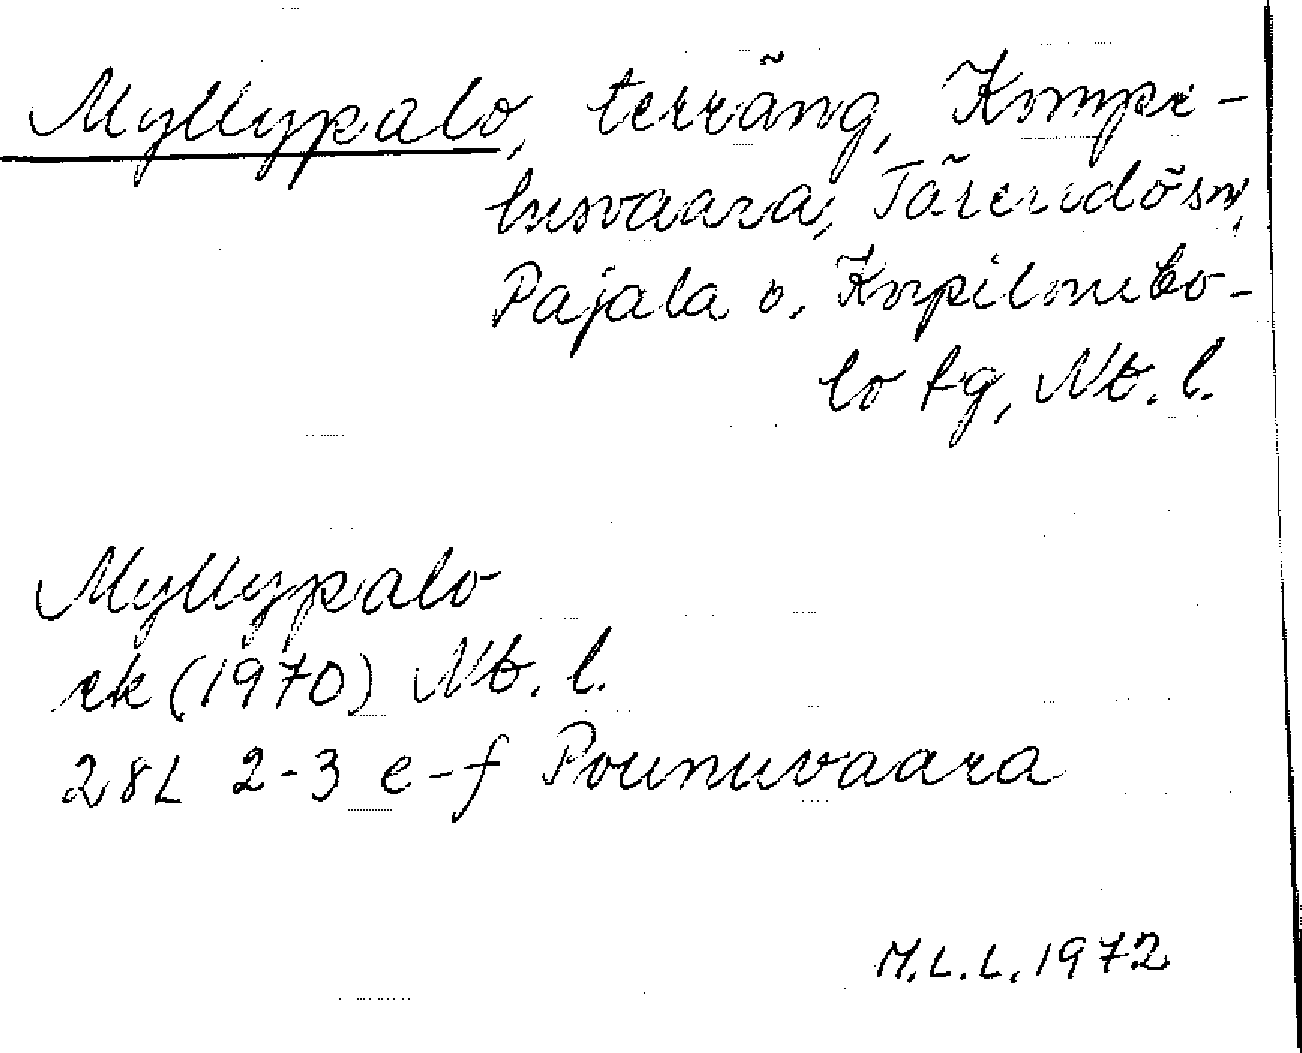 Myllypalo, terräng, Kompe-
lusvaara, Tärendö sn,
Pajala o. Korpilombo-
lo tg, Nb. l.
Myllypalo
ek (1970) Nb. l.
28L 2-3 e-f Pounuvaara
M.L.L. 1972